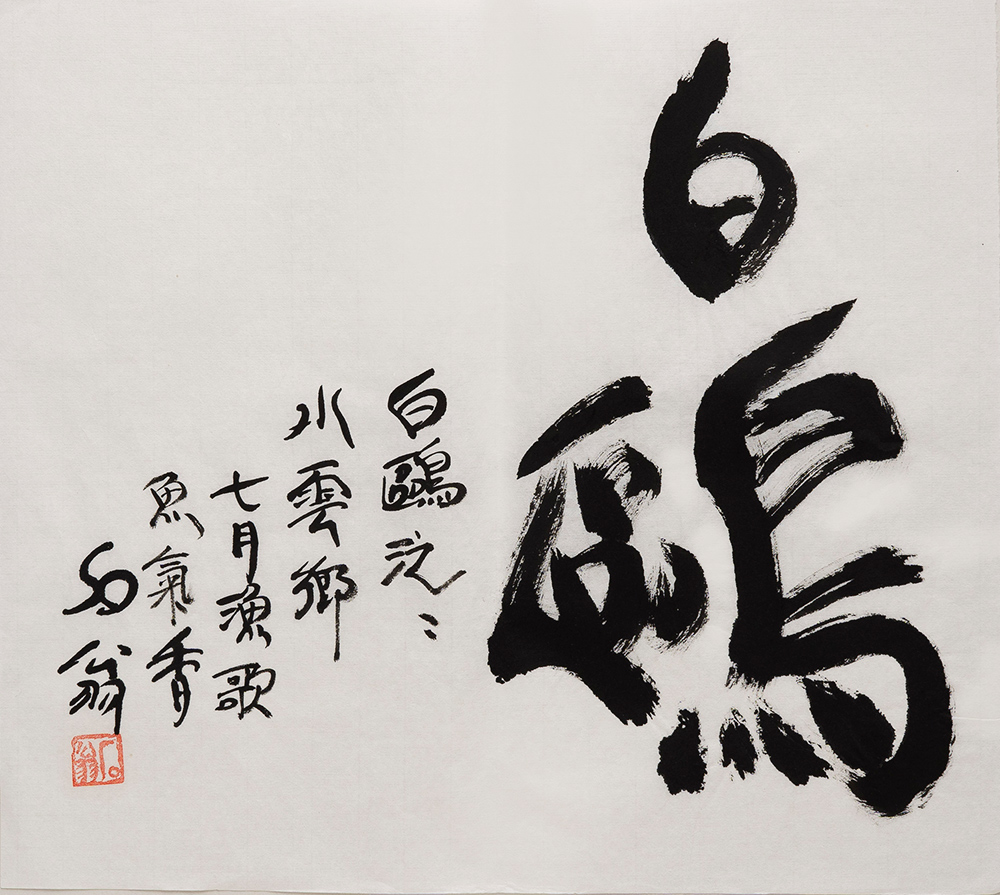 白鷗
白鷗
水雲鄉
七月漁歌
魚氣香
翁